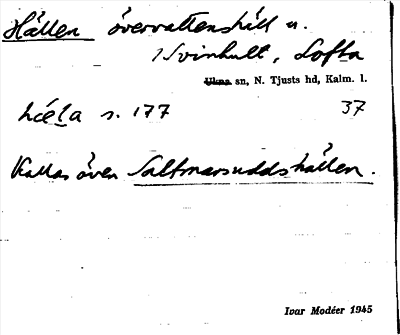 Hällen övervattenshäll n.
Svinhult, Lofta
Ukna sn, N. Tjusts hd, Kalm. l.
s. 177 37
Kallas även Saltmarsuddshällen.
Ivar Modéer 1945